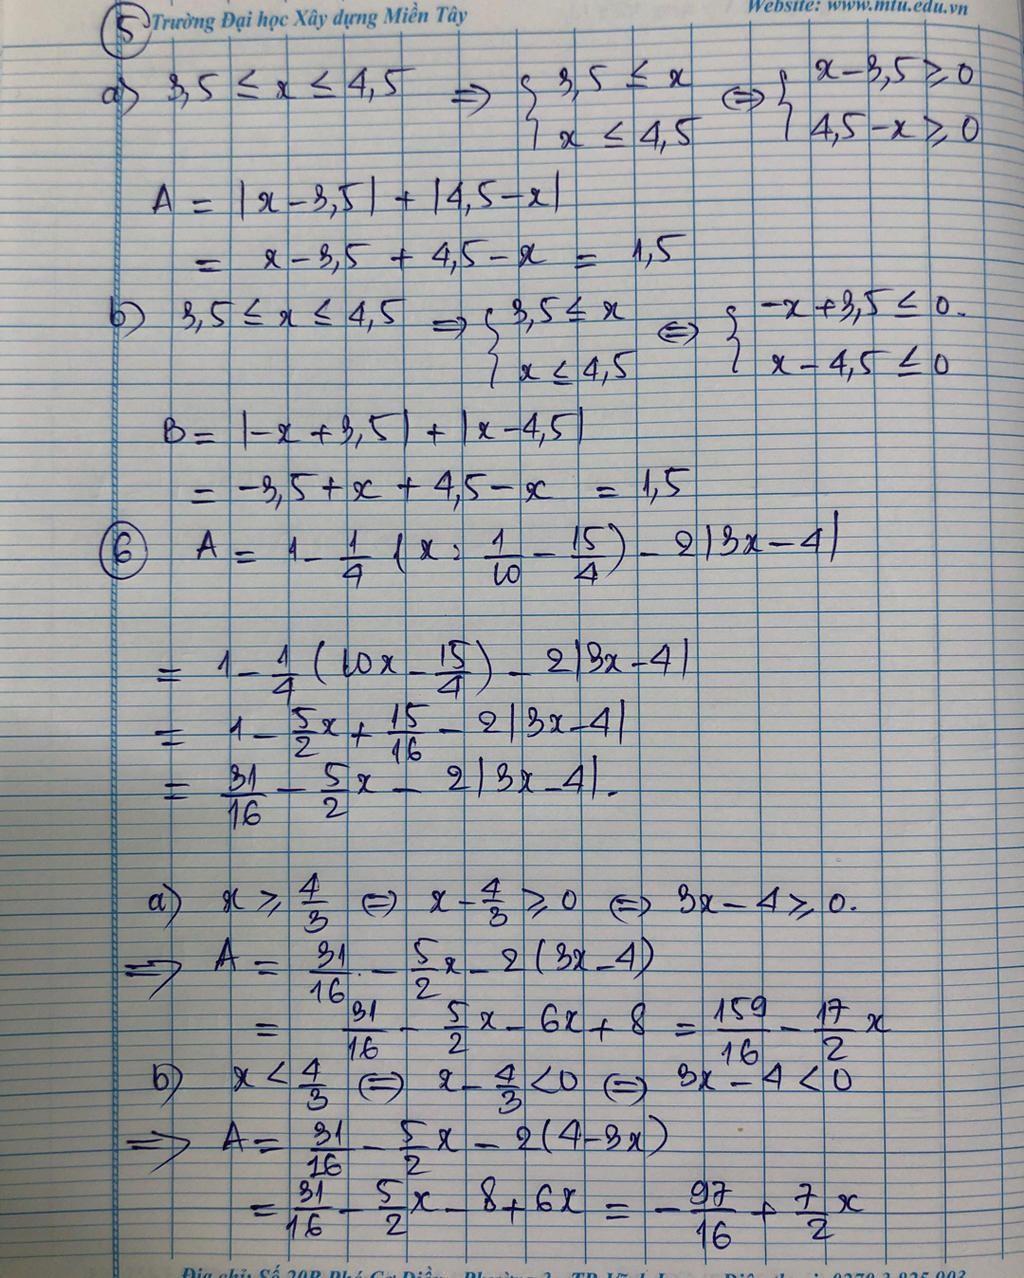 Trường Đại học Xây dựng Miền Tây Website: www.mtu.edu.vn
⑤
a) 3,5 ≤ x ≤ 4,5 => { 3,5 ≤ x <=> { x - 3,5 ≥ 0
x ≤ 4,5 4,5 - x ≥ 0
A = |x - 3,5| + |4,5 - x|
= x - 3,5 + 4,5 - x = 1,5
b) 3,5 ≤ x ≤ 4,5 => { 3,5 ≤ x <=> { -x + 3,5 ≤ 0.
x ≤ 4,5 x - 4,5 ≤ 0
B = |-x + 3,5| + |x - 4,5|
= -3,5 + x + 4,5 - x = 1,5
⑥ A = 1 - 1/4 (x : 1/10 - 15/4) - 2|3x - 4|
= 1 - 1/4 (10x - 15/4) - 2|3x - 4|
= 1 - 5/2 x + 15/16 - 2|3x - 4|
= 31/16 - 5/2 x - 2|3x - 4|.
a) x ≥ 4/3 <=> x - 4/3 ≥ 0 <=> 3x - 4 ≥ 0.
=> A = 31/16 - 5/2 x - 2(3x - 4)
= 31/16 - 5/2 x - 6x + 8 = 159/16 - 17/2 x
b) x < 4/3 <=> x - 4/3 < 0 <=> 3x - 4 < 0
=> A = 31/16 - 5/2 x - 2(4 - 3x)
= 31/16 - 5/2 x - 8 + 6x = - 97/16 + 7/2 x
Địa chỉ: Số 20B